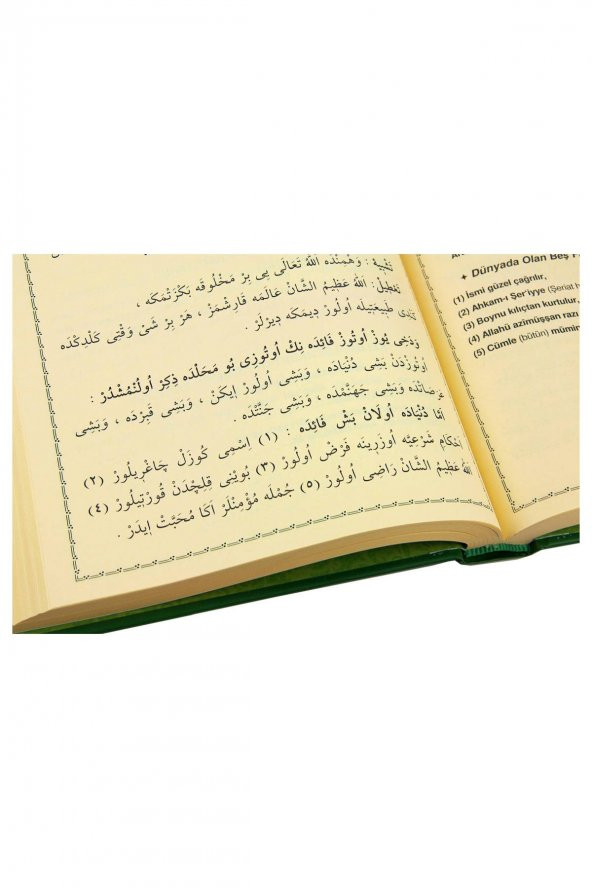 تَشْبِيهْ : وَهْمِنْدَه اللهُ تَعَالَى يِى بِرْ مَخْلُوقَه بَكْزَتْمَكَه ،
تَعْطِيلْ : اللهُ عَظِيمُ الشَّانْ عَالَمَه قَارِشْمَزْ ، هَرْ بِرْ شَىْ وَقْتِى كَلْدِكْدَه
كَنْدِى طَبِيعَتِيلَه اُولُورْ دِيمَكَه دِيرْلَرْ .
وَدَخِى يُوزْ اُوتُوزْ فَائِدَه نِكْ اُوتُوزِى بُو مَحَلْدَه ذِكِرْ اُولُنْمُشْدُرْ :
اُوتُوزْدَنْ بَشِى دُنْيَادَه ، وَبَشِى اُولُورْ اِيكَنْ ، وَبَشِى قَبِرْدَه ، وَبَشِى
عَرَصَاتْدَه وَبَشِى جَهَنَّمْدَه ، وَبَشِى جَنَّتْدَه .
اَمَّا دُنْيَادَه اُولَانْ بَشْ فَائِدَه : (١) اِسْمِى كُوزَلْ چَاغْرِيلُورْ (٢)
اَحْكَامِ شَرْعِيَّه اُوزَرِينَه فَرْضْ اُولُورْ (٣) بُويْنِى قِلِچْدَنْ قُورْتِيلُورْ (٤)
اللهُ عَظِيمُ الشَّانْ رَاضِى اُولُورْ (٥) جُمْلَه مُؤْمِنْلَرْ اَكَا مُحَبَّتْ اِيدَرْ .
✦ Dünyada Olan Beş
(1) İsmi güzel çağrılır,
(2) Ahkam-ı Şer'iyye (Şeriat
(3) Boynu kılıçtan kurtulur,
(4) Allahü azimüşşan razı
(5) Cümle (bütün)